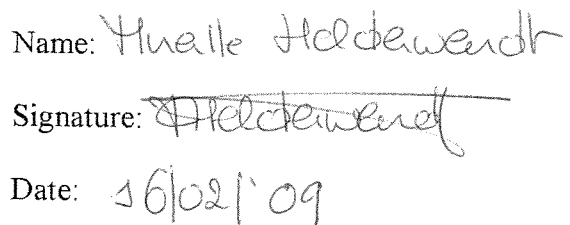 Name: Holderwendt
Signature: Holderwendt
Date: 16/02/'09